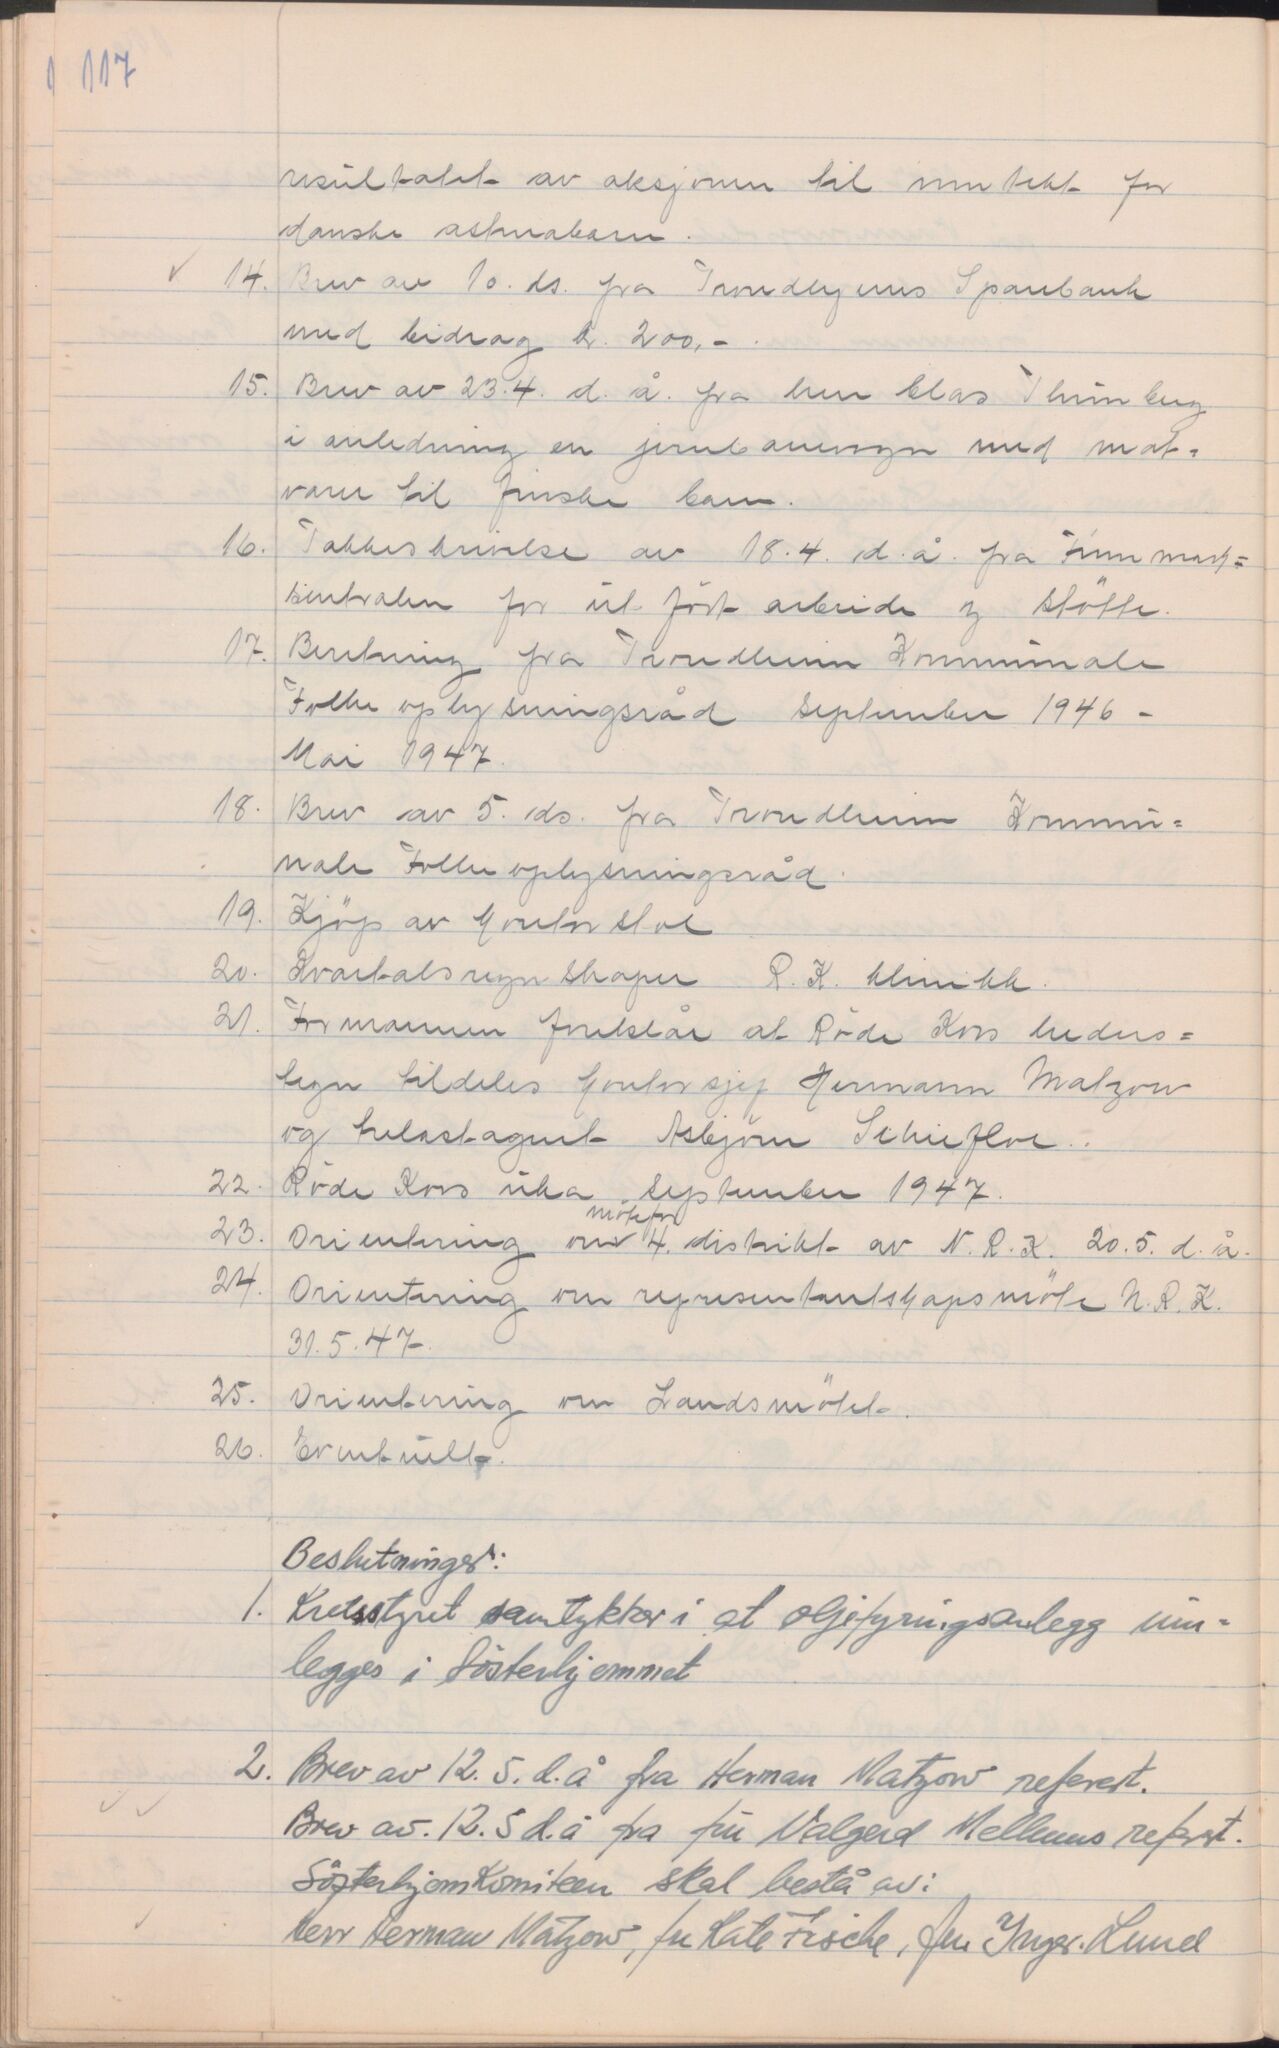 117
resultatet av aksjonen til inntekt for
danske astmabarn.
14. Brev av 10. ds. fra Trondhjems Sparebank
med bidrag kr. 200,-
15. Brev av 23.4. d. å. fra herr Clas Thunberg
i anledning en jernbanevogn med mat=
varer til finske barn.
16. Takkeskrivelse av 18.4. d. å. fra Finnmark=
sentralen for utført arbeide og støtte.
17. Beretning fra Trondheim Kommunale
Folkeoplysningsråd september 1946 -
Mai 1947.
18. Brev av 5. ds. fra Trondheim Kommu=
nale Folkeoplysningsråd.
19. Kjöp av kontorstol
20. Kvartalsregnskaper R. K. klinikk.
21. Formannen foreslår at Röde Kors heders=
tegn tildeles kontorsjef Hermann Matzow
og trelastagent Asbjörn Schiefloe.
22. Röde Kors uka september 1947.
23. Orientering om möte for 4. distrikt av N. R. K. 20.5. d. å.
24. Orientering om representantskapsmöte N. R. K.
31.5.47.
25. Orientering om Landsmötet.
26. Eventuelt.
Beslutninger:
1. Kretsstyret samtykker i at oljefyringsanlegg inn=
legges i Søsterhjemmet
2. Brev av 12.5. d. å fra Herman Matzow referert.
Brev av. 12.5 d. å fra fru Valgerd Mellum referert.
Søsterhjemkomiteen skal bestå av:
herr Herman Matzow, fru Kate Fische, fru Inger. Lund